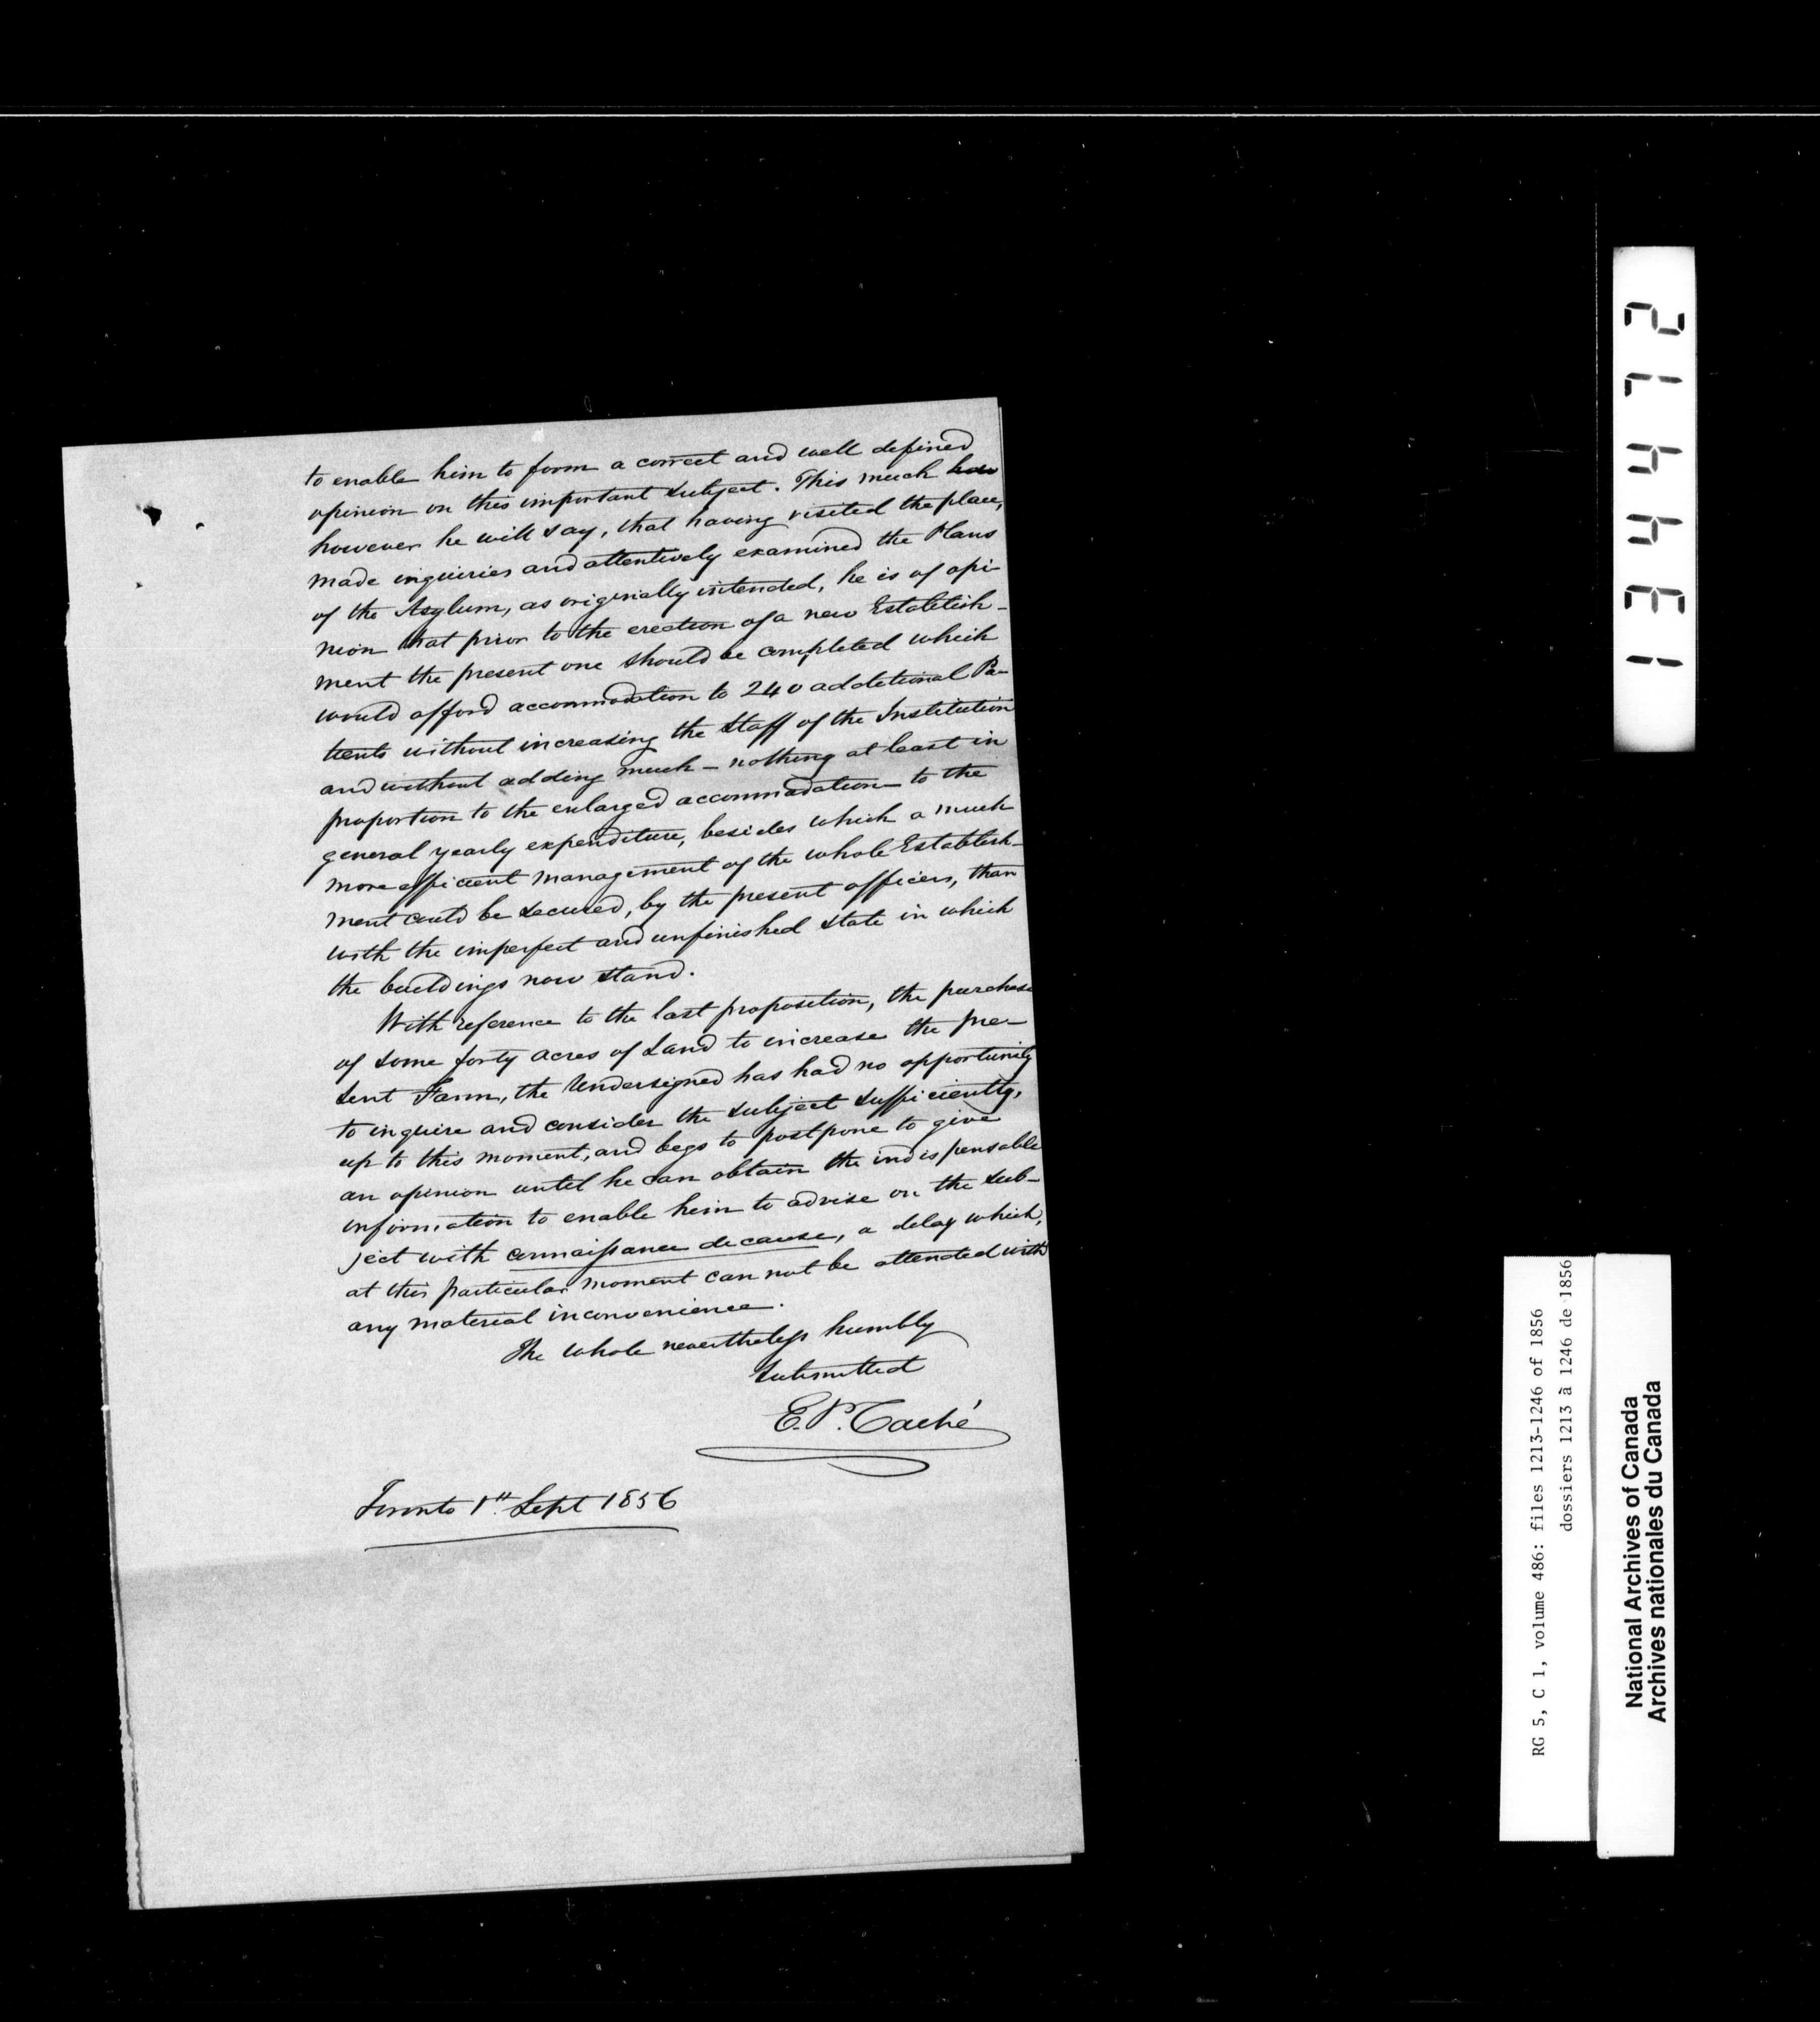 to enable him to form a correct and well defined
opinion on this important subject. This much how
however he will say, that having visited the place,
made inquiries and attentively examined the Plans
of the Asylum, as originally intended, he is of opi-
nion that prior to the erection of a new Establish-
ment the present one should be completed which
would afford accommodation to 240 additional Pa-
tients without increasing the Staff of the Institution
and without adding much — nothing at least in
proportion to the enlarged accommodation — to the
general yearly expenditure, besides which a much
more efficient management of the whole Establish-
ment could be secured, by the present officers, than
with the imperfect and unfinished state in which
the buildings now stand.
With reference to the last proposition, the purchase
of some forty acres of Land to increase the pre-
sent Farm, the Undersigned has had no opportunity
to inquire and consider the subject sufficiently,
up to this moment, and begs to postpone to give
an opinion until he can obtain the indispensable
information to enable him to advise on the sub-
ject with connaissance de cause, a delay which,
at this particular moment can not be attended with
any material inconvenience.
The whole nevertheless humbly
submitted
E. P. Taché
Toronto 1st Sept 1856
134472
RG 5, C 1, volume 486: files 1213-1246 of 1856
dossiers 1213 à 1246 de 1856
National Archives of Canada
Archives nationales du Canada